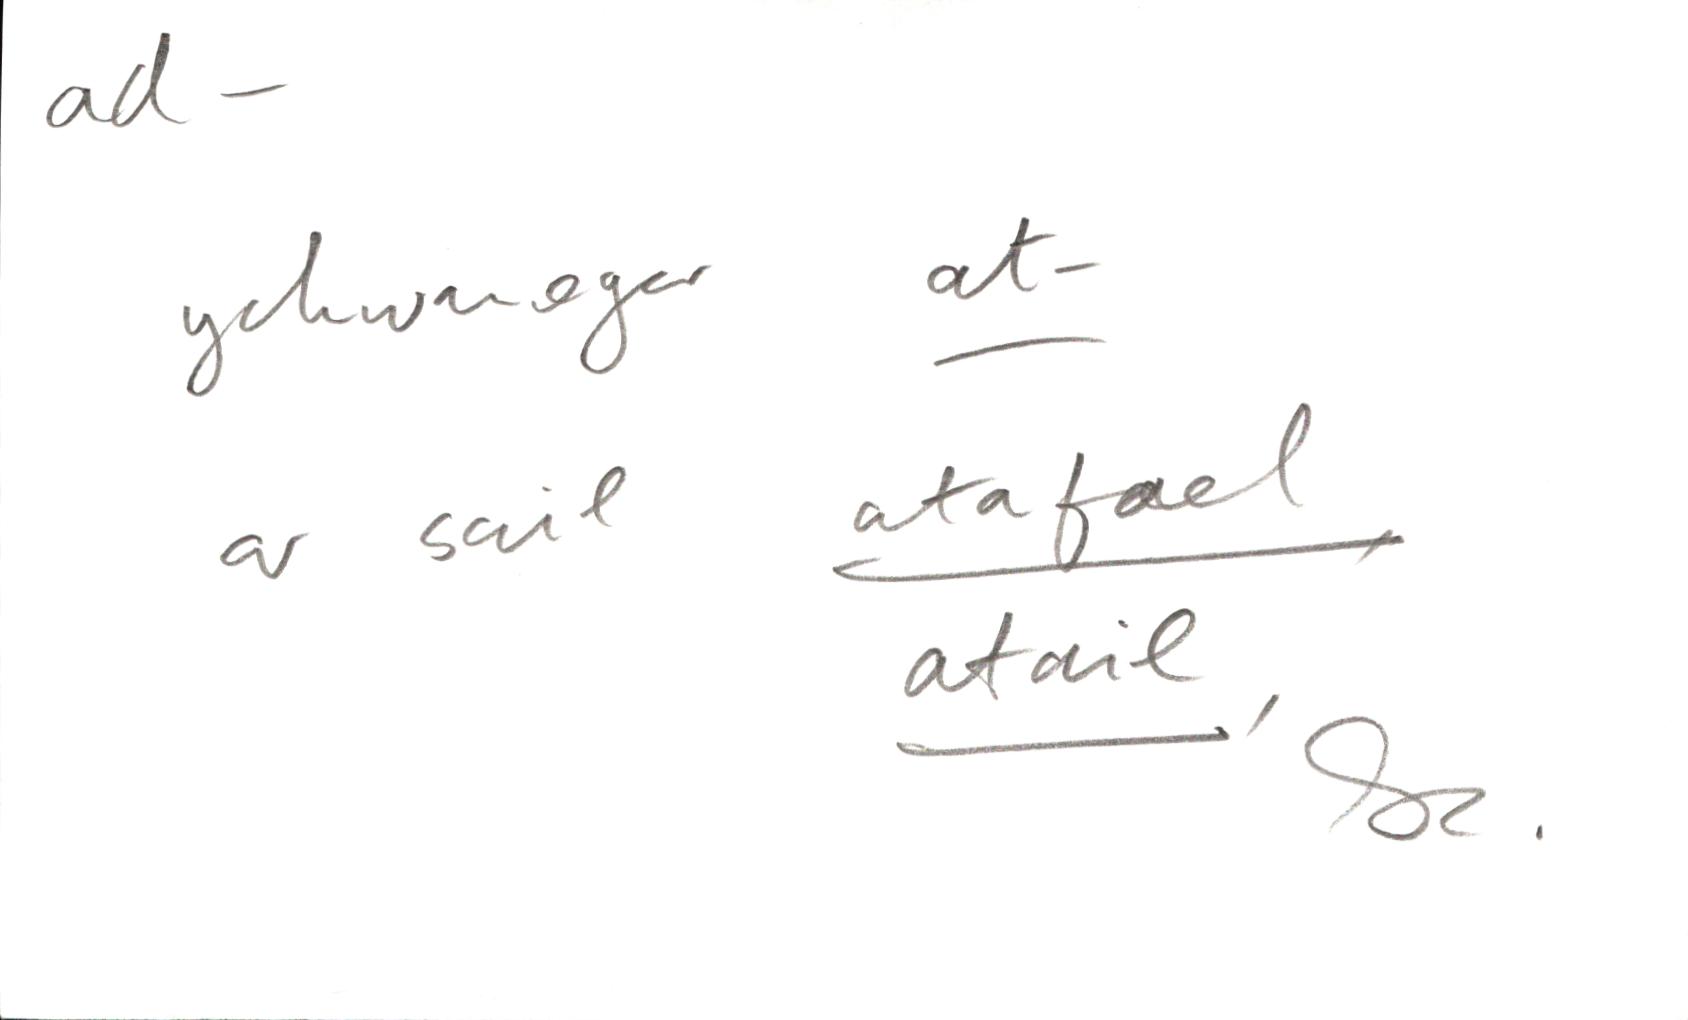 ad -
ychwaneger at-
ar sail atafael
atail, &c.